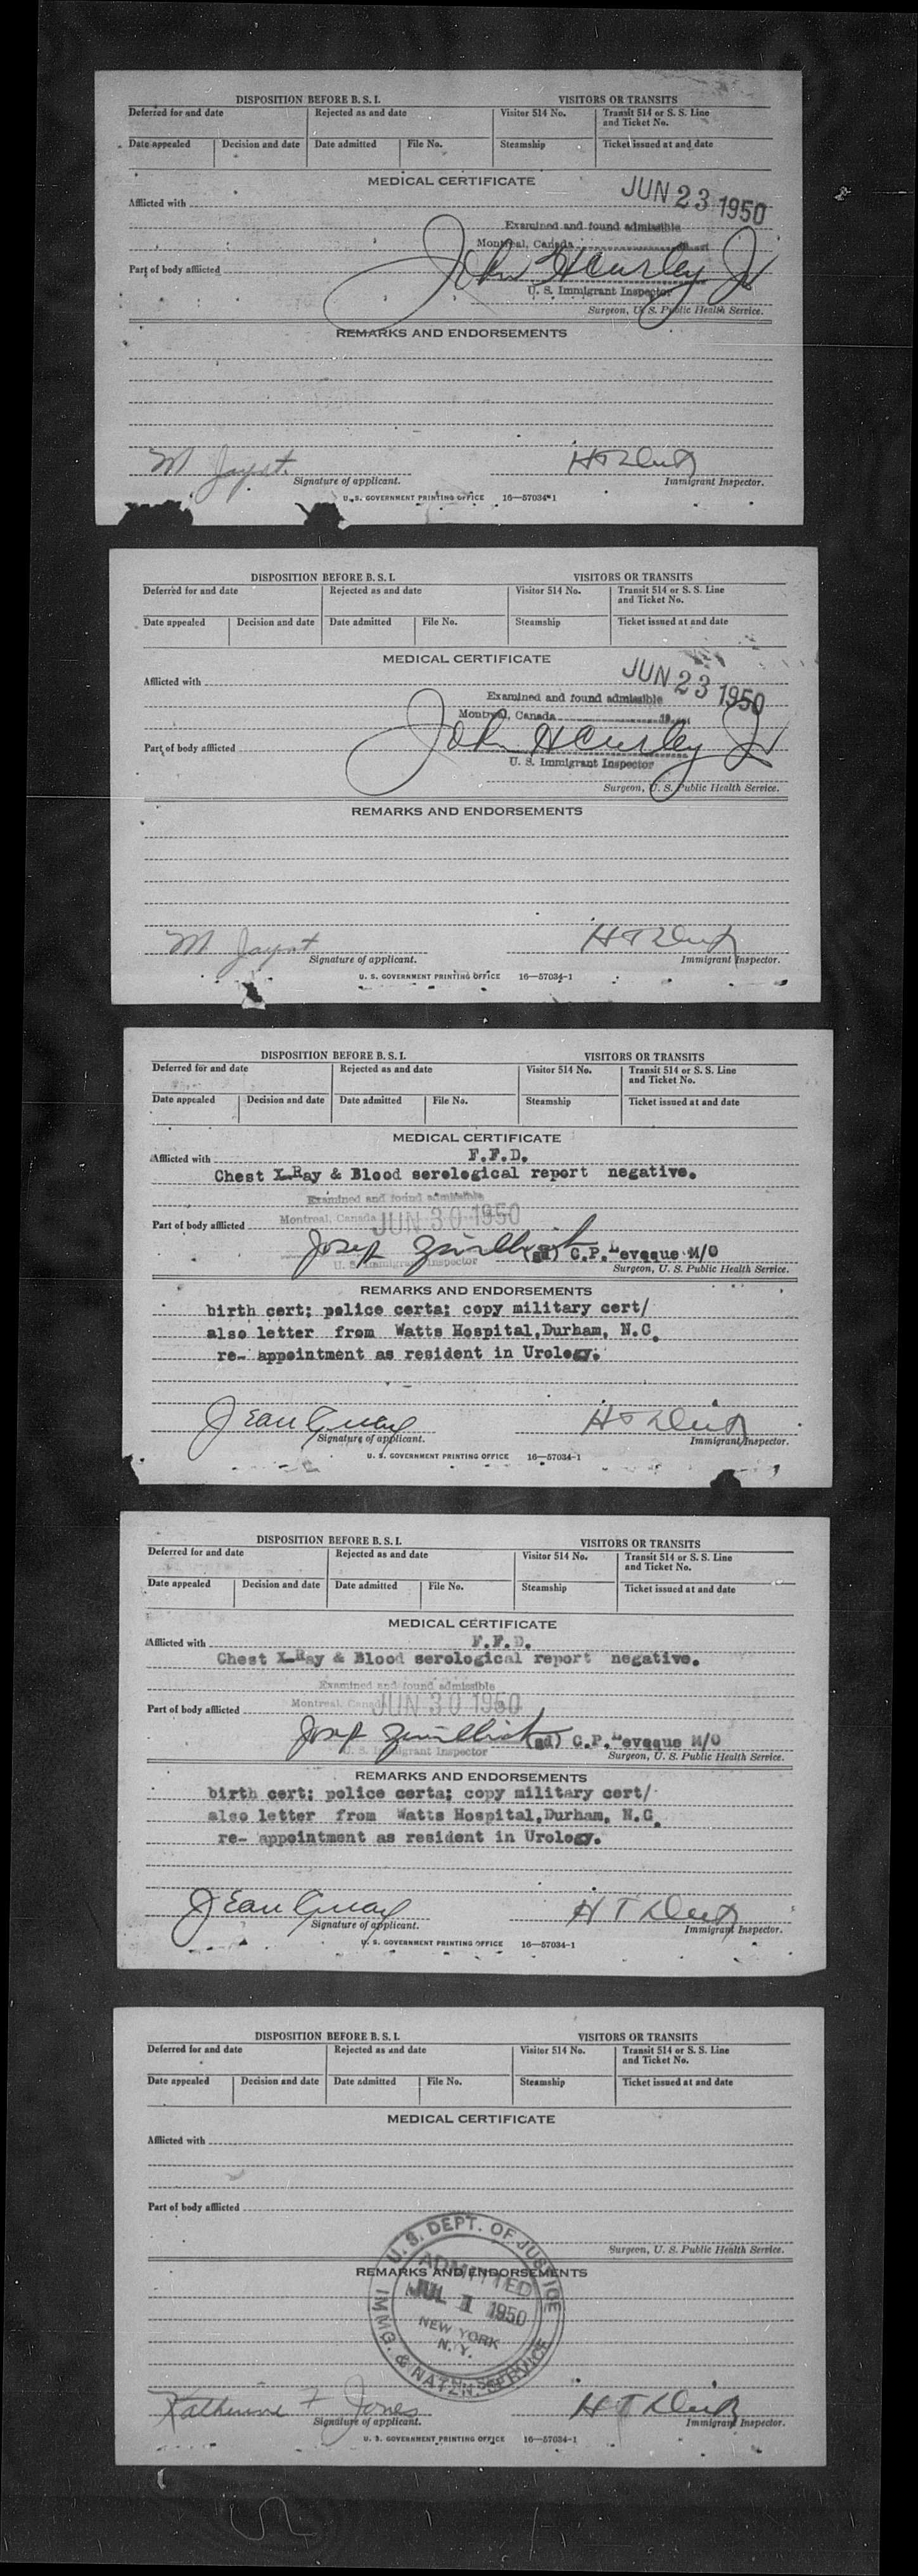 DISPOSITION BEFORE B. S. I. VISITORS OR TRANSITS
Deferred for and date Rejected as and date Visitor 514 No. Transit 514 or S. S. Line and Ticket No.
Date appealed Decision and date Date admitted File No. Steamship Ticket issued at and date
MEDICAL CERTIFICATE
JUN 23 1950
Afflicted with
Examined and found admissible
Montreal, Canada
John H Curley Jr
Part of body afflicted
U. S. Immigrant Inspector
Surgeon, U. S. Public Health Service.
REMARKS AND ENDORSEMENTS
M
Signature of applicant. Immigrant Inspector.
U. S. GOVERNMENT PRINTING OFFICE 16—57034-1
DISPOSITION BEFORE B. S. I. VISITORS OR TRANSITS
Deferred for and date Rejected as and date Visitor 514 No. Transit 514 or S. S. Line and Ticket No.
Date appealed Decision and date Date admitted File No. Steamship Ticket issued at and date
MEDICAL CERTIFICATE
JUN 23 1950
Afflicted with
Examined and found admissible
Montreal, Canada 19
John H Curley Jr
Part of body afflicted
U. S. Immigrant Inspector
Surgeon, U. S. Public Health Service.
REMARKS AND ENDORSEMENTS
M
H T
Signature of applicant. Immigrant Inspector.
U. S. GOVERNMENT PRINTING OFFICE 16—57034-1
DISPOSITION BEFORE B. S. I. VISITORS OR TRANSITS
Deferred for and date Rejected as and date Visitor 514 No. Transit 514 or S. S. Line and Ticket No.
Date appealed Decision and date Date admitted File No. Steamship Ticket issued at and date
MEDICAL CERTIFICATE
Afflicted with F.F.D.
Chest X-Ray & Blood serological report negative.
Examined and found admissible
Part of body afflicted Montreal, Canada JUN 30 1950
(sd) C.P. Leveque M/O
U. S. Immigrant Inspector
Surgeon, U. S. Public Health Service.
REMARKS AND ENDORSEMENTS
birth cert; police certs; copy military cert/
also letter from Watts Hospital, Durham, N.C.
re- appointment as resident in Urology.
Jean Guay
H T
Signature of applicant. Immigrant Inspector.
U. S. GOVERNMENT PRINTING OFFICE 16—57034-1
DISPOSITION BEFORE B. S. I. VISITORS OR TRANSITS
Deferred for and date Rejected as and date Visitor 514 No. Transit 514 or S. S. Line and Ticket No.
Date appealed Decision and date Date admitted File No. Steamship Ticket issued at and date
MEDICAL CERTIFICATE
Afflicted with F.F.D.
Chest X-Ray & Blood serological report negative.
Examined and found admissible
Part of body afflicted Montreal, Canada JUN 30 1950
(sd) C.P. Leveque M/O
U. S. Immigrant Inspector
Surgeon, U. S. Public Health Service.
REMARKS AND ENDORSEMENTS
birth cert; police certs; copy military cert/
also letter from Watts Hospital, Durham, N.C.
re- appointment as resident in Urology.
Jean Guay
H T
Signature of applicant. Immigrant Inspector.
U. S. GOVERNMENT PRINTING OFFICE 16—57034-1
DISPOSITION BEFORE B. S. I. VISITORS OR TRANSITS
Deferred for and date Rejected as and date Visitor 514 No. Transit 514 or S. S. Line and Ticket No.
Date appealed Decision and date Date admitted File No. Steamship Ticket issued at and date
MEDICAL CERTIFICATE
Afflicted with
Part of body afflicted
Surgeon, U. S. Public Health Service.
REMARKS AND ENDORSEMENTS
U. S. DEPT. OF JUSTICE
ADMITTED
JUL 1 1950
NEW YORK
N. Y.
IMMG. & NATZN. SERVICE
Katherine F Jones
H T
Signature of applicant. Immigrant Inspector.
U. S. GOVERNMENT PRINTING OFFICE 16—57034-1